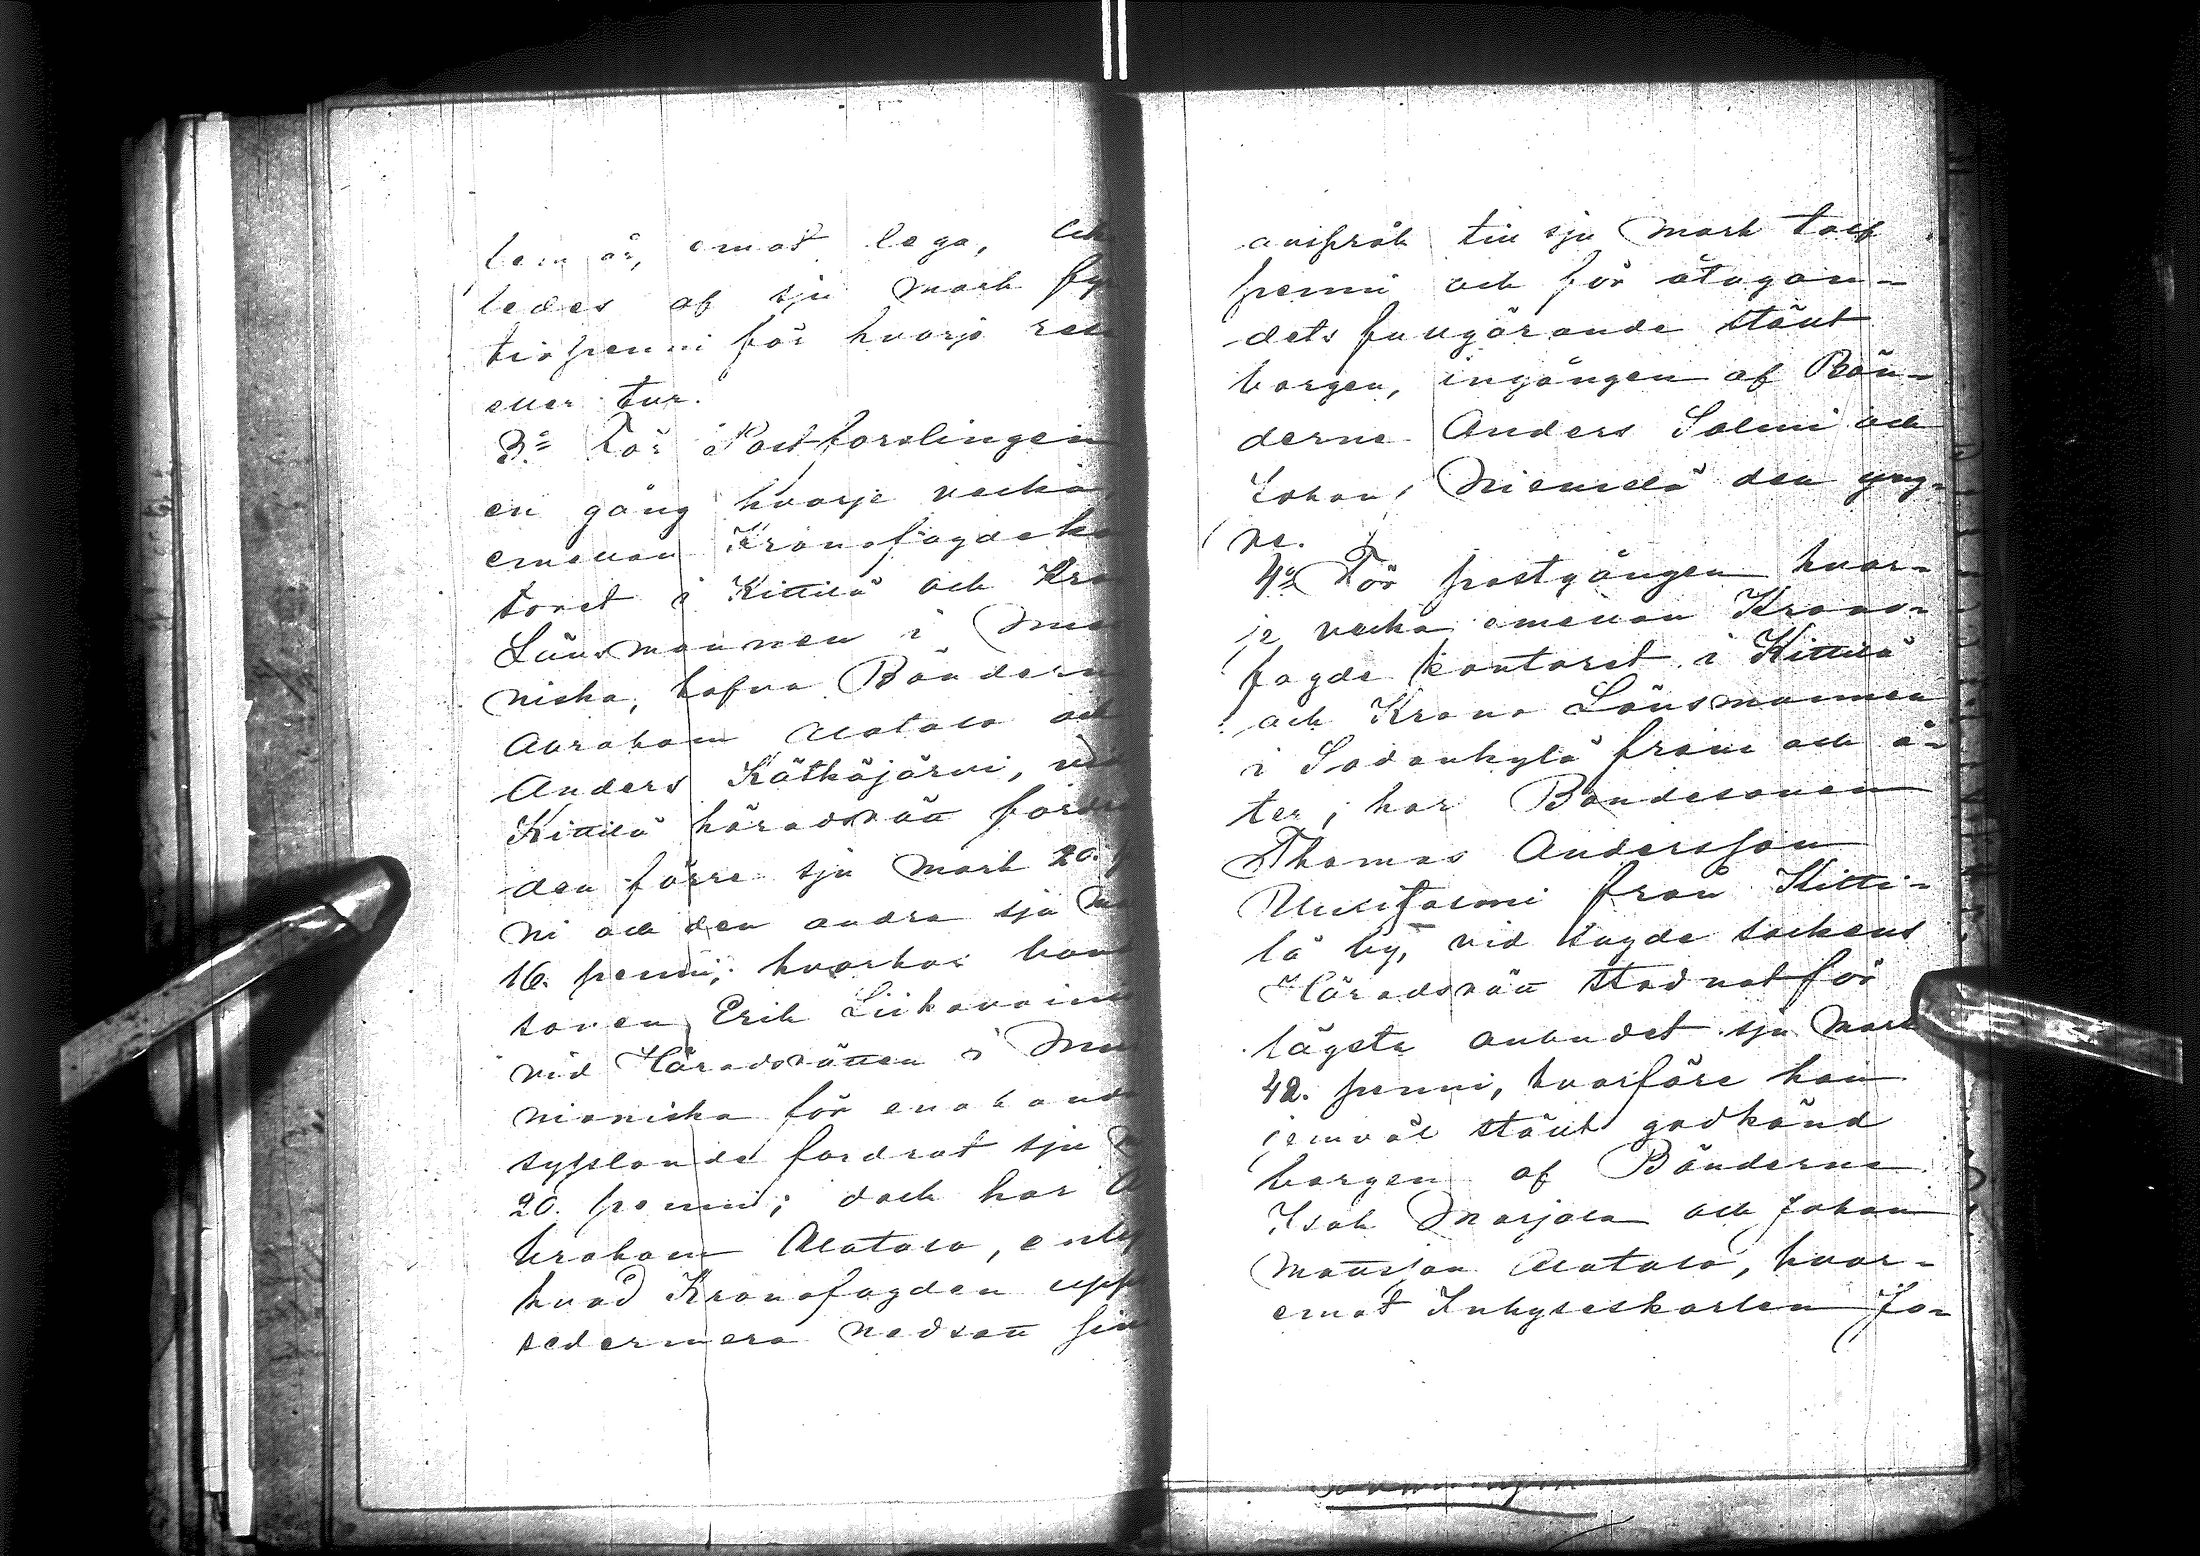 lem år, emot lega,
ledes af sju mark
tiopenni för hvarje
eller tur.
3:o För Postforslingen
en gång hvarje vecka,
emellan Kronofogdeko
toret i Kittilä och Kro
Länsmannen i Muo
niska, hafva Bönderne
Abraham Alatalo och
Anders Kätkäjärvi, vid
Kittilä häradsrätt fordr
den förre sju mark 20. p
ni och den andra sju m
16. penni; hvarhos bon
sonen Erik Liikavain
vid Häradsrätten i Muo
nioniska för enahanda
sysslande fordrat sju m
20. penni; dock har A
braham Alatalo, enligt
hvad Kronofogden upp
sedermera nedsatt sin
anspråk till sju mark tolf
penni och för åtagan-
dets fullgörande ställt
borgen, ingången af Bön-
derne Anders Salmi och
Johan Niemelä den yng-
re.
4:o För postgången hvar-
je vecka emellan Krono-
fogde kontoret i Kittilä
och Krono Länsmannen
i Sodankylä fram och å-
ter, har Bondesonen
Thomas Andersson
från Kitti-
lä by, vid sagde sockens
Häradsrätt stadnat för
lägsta anbudet sju mark
42. penni, hvarföre han
jemväl ställt godkänd
borgen af Bönderne
Isak Marjala och Johan
Mattsson Alatalo, hvar-
emot Inhyseskarlen Jo-